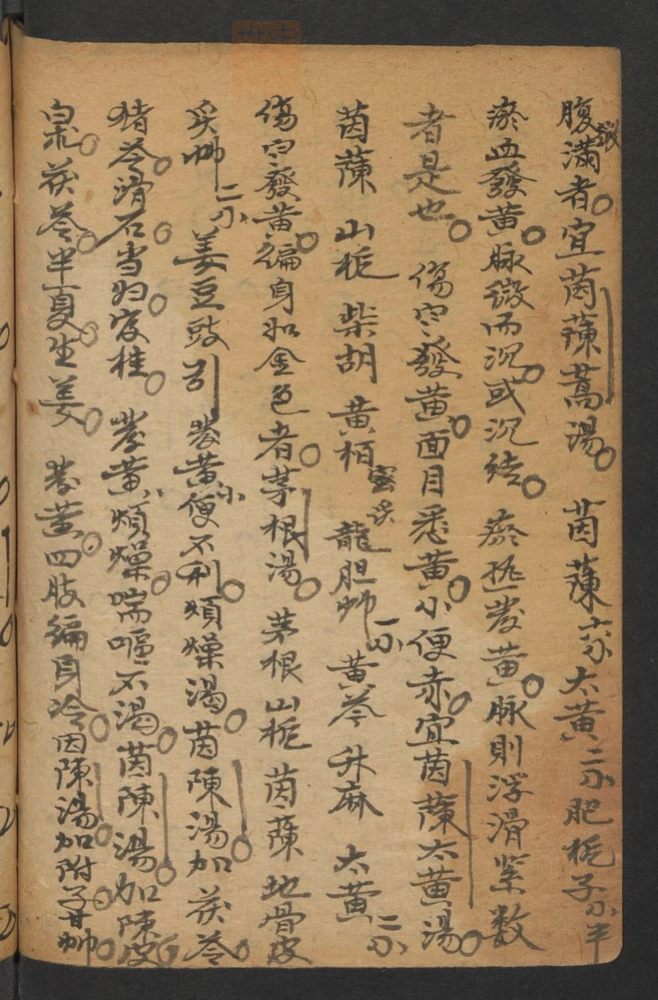 腹滿者宜茵蔯蒿湯 茵蔯 太黃二分肥梔子分半
瘀血發黃脉微而沉或沉結 瘀热發黃脉則浮滑紧数
者是也 傷寒發黃面目悉黃小便赤宜茵蔯太黃湯
茵蔯 山梔 柴胡 黃栢蜜炙 龍胆艸一分 黃芩 升麻 太黃二分
傷寒發黃徧身如金色者茅根湯 茅根 山梔 茵蔯 地骨皮
炙艸二分 姜豆豉引 發黃小便不利煩燥渴茵陳湯加茯苓
猪苓滑石当归官桂 發黃煩燥喘嘔不渴茵陳湯加陳皮
白朮茯苓半夏生姜 發黃四肢徧身冷因陳湯加附子甘艸